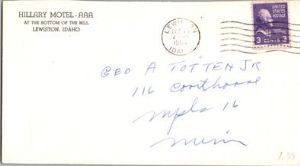 HILLARY MOTEL-AAA
AT THE BOTTOM OF THE HILL
LEWISTON, IDAHO
LEWISTON
IDAHO
UNITED STATES POSTAGE
3 CENTS 3
GEO A TOTTEN JR
116 Courthouse
mpls 16
Minn